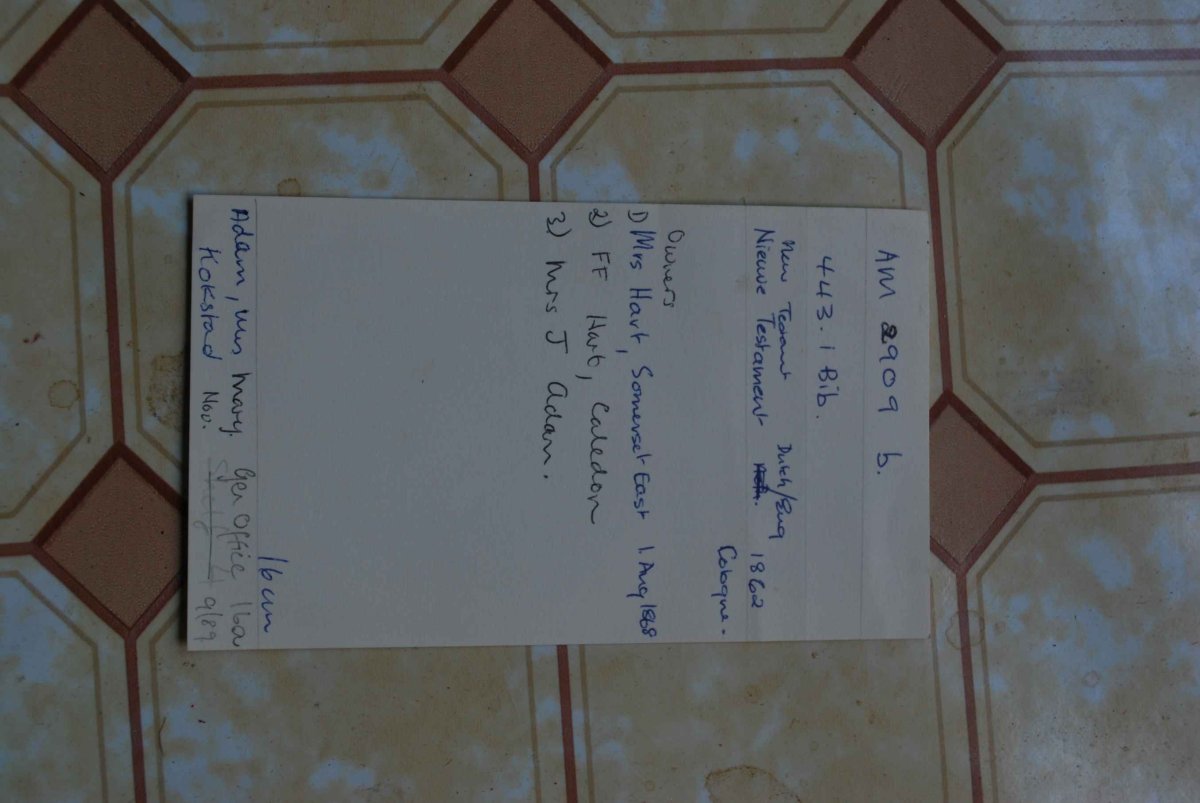 AM 2909 b.
443.1 Bib.
New Testament Dutch/Eng
Nieuwe Testament 1862
Cologne.
Owners
1) Mrs Hart, Somerset East 1. Aug 1868
2) FF Hart, Caledon
3) Mrs J Adam.
16cm
Adam, Mrs Mary. Gen Office 16a
Kokstad Nov. 9/89